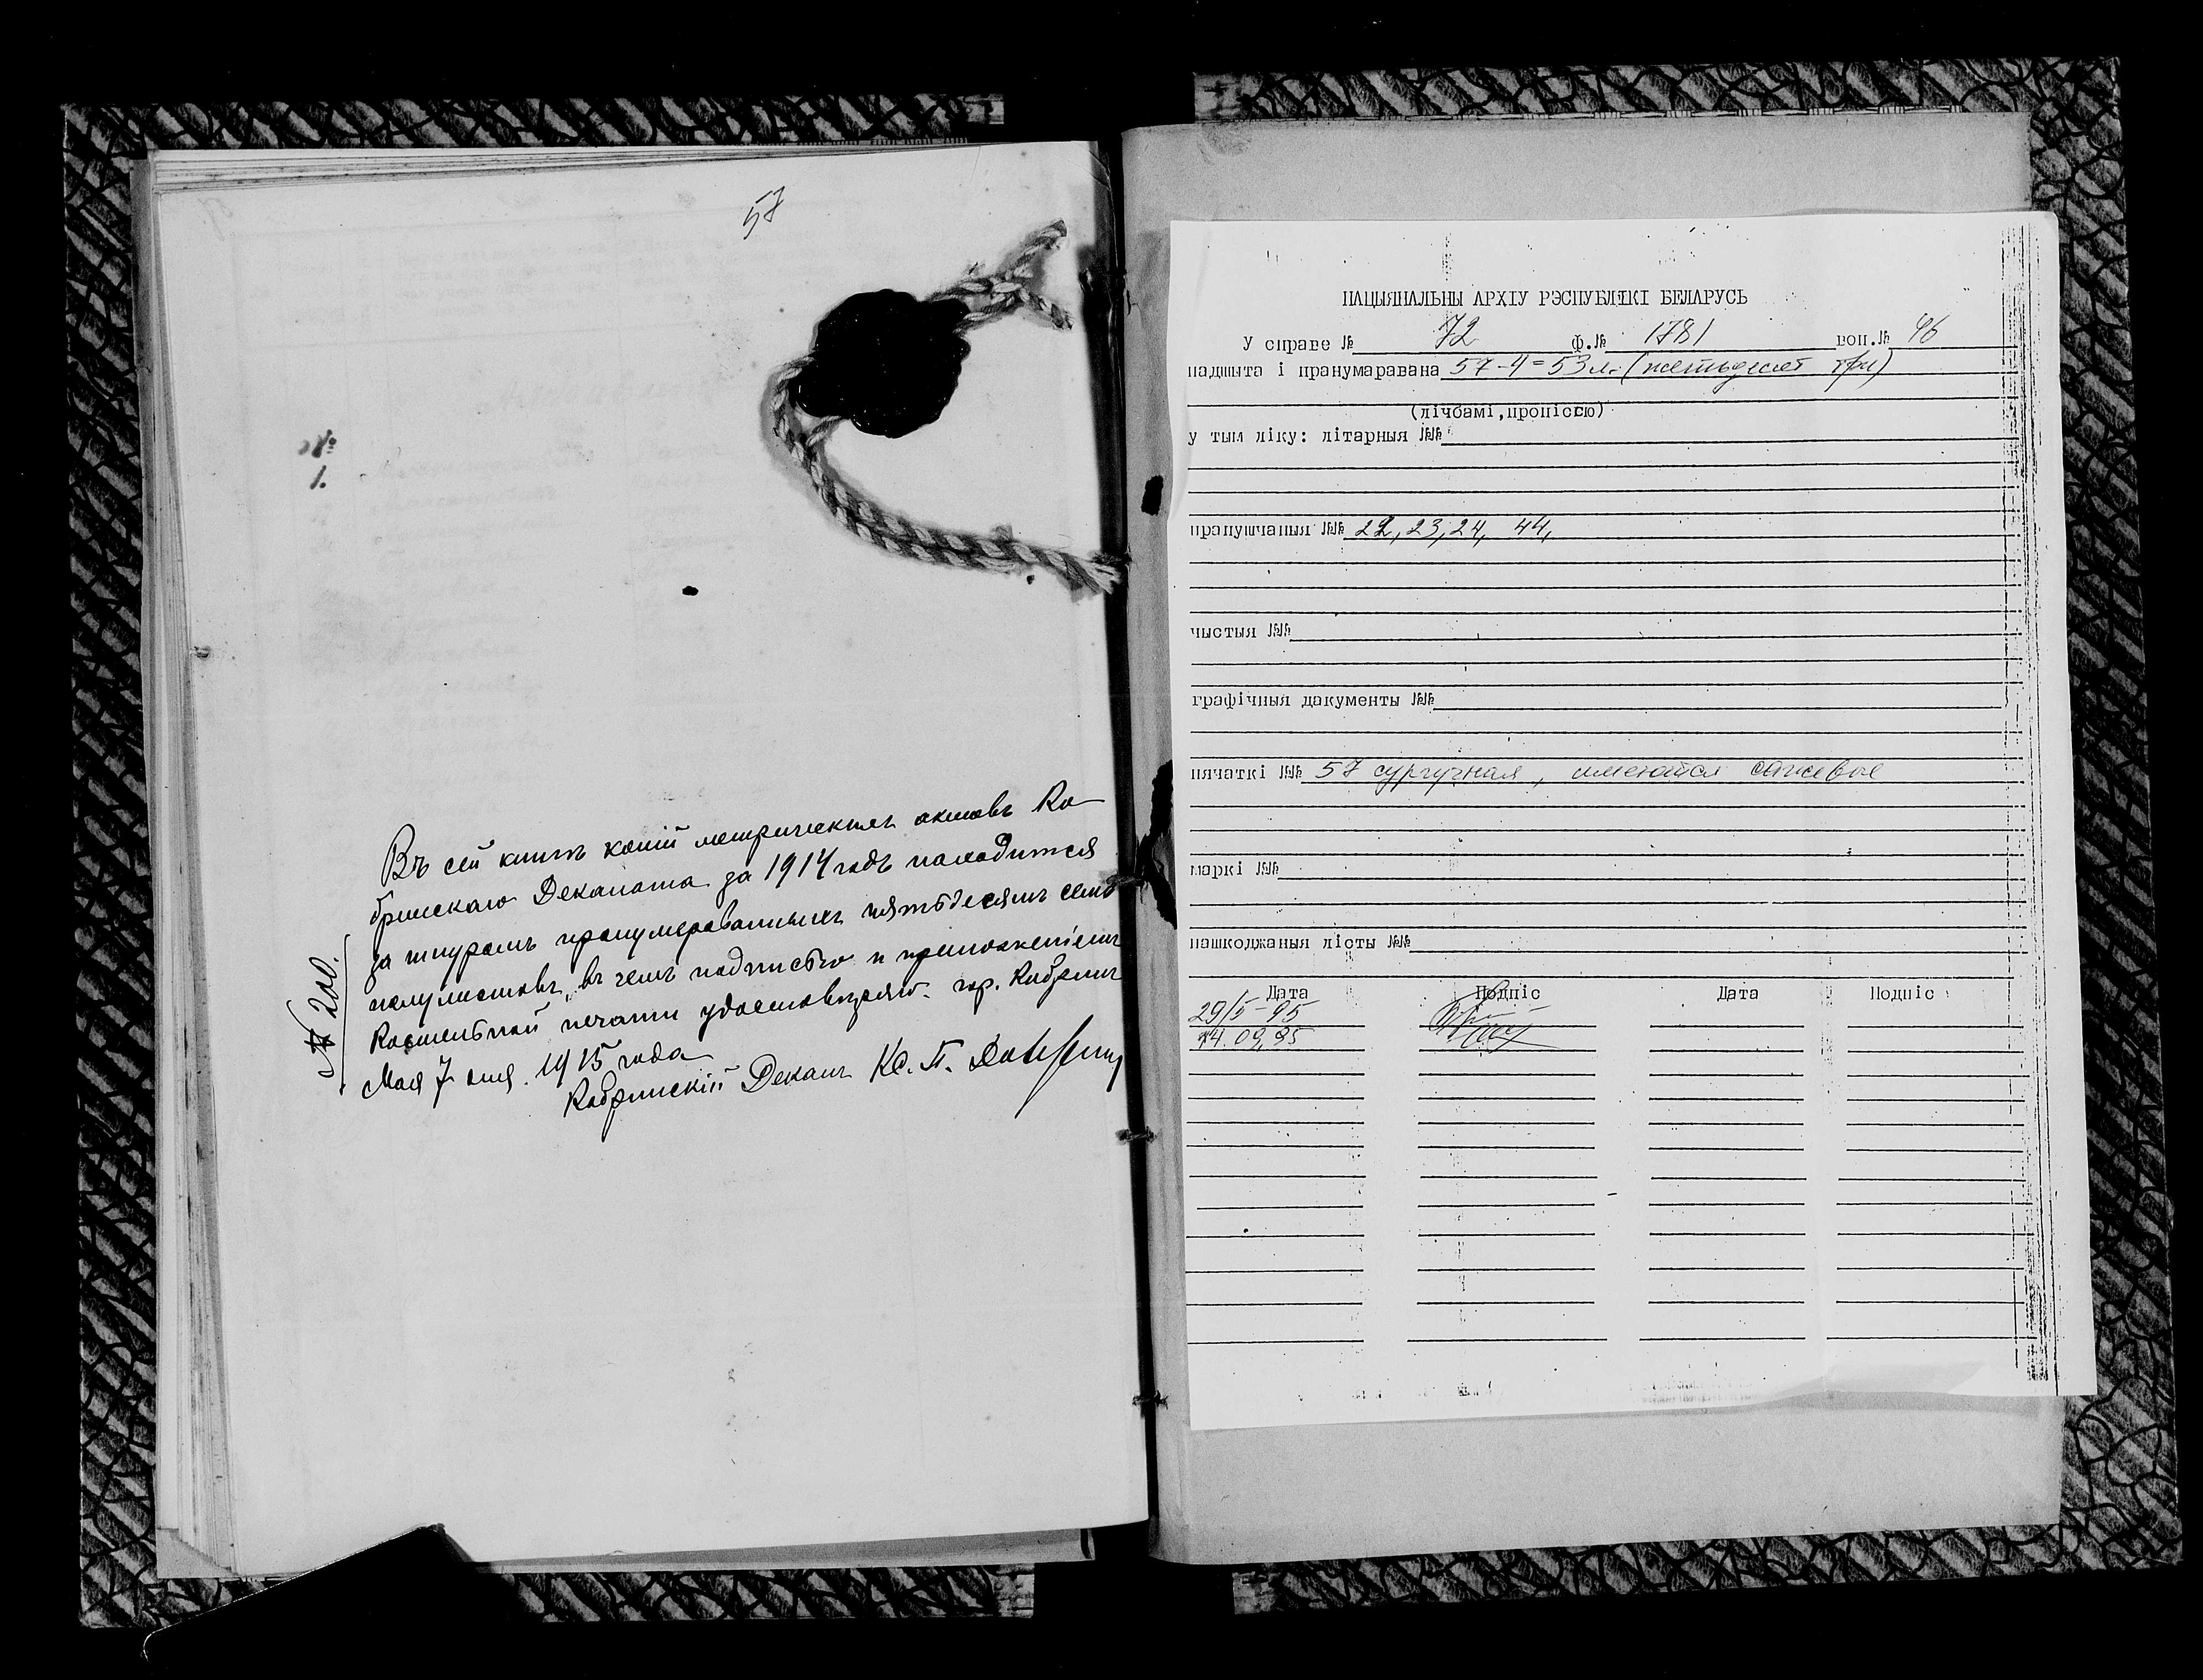 57
№
1.
Въ сей книгѣ копій метрическихъ актовъ Ко-
бринскаго Деканата за 1914 годъ находится
за шнуромъ пронумерованныхъ пятьдесятъ семь
полулистовъ, въ чемъ подписью и приложеніемъ
Костельной печати удостовѣряю. гор. Кобринъ
Мая 7 дня. 1915 года
Кобринскій Деканъ Кс. П.
№ 200.
НАЦЫЯНАЛЬНЫ АРХІУ РЭСПУБЛІКІ БЕЛАРУСЬ
У справе № 72 ф.№ 1781 воп.№ 46
падшыта і пранумаравана 57-4=53 л. (пятьдесят три)
(лічбамі,пропіссю)
у тым ліку: літарныя №№
прапушчаныя №№ 22, 23, 24, 44,
чыстыя №№
графічныя дакументы №№
пячаткі №№ 57 сургучная, имеются сажевые
маркі №№
пашкоджаныя лісты №№
Дата Подпіс Дата Подпіс
29/5-95
14.09.95